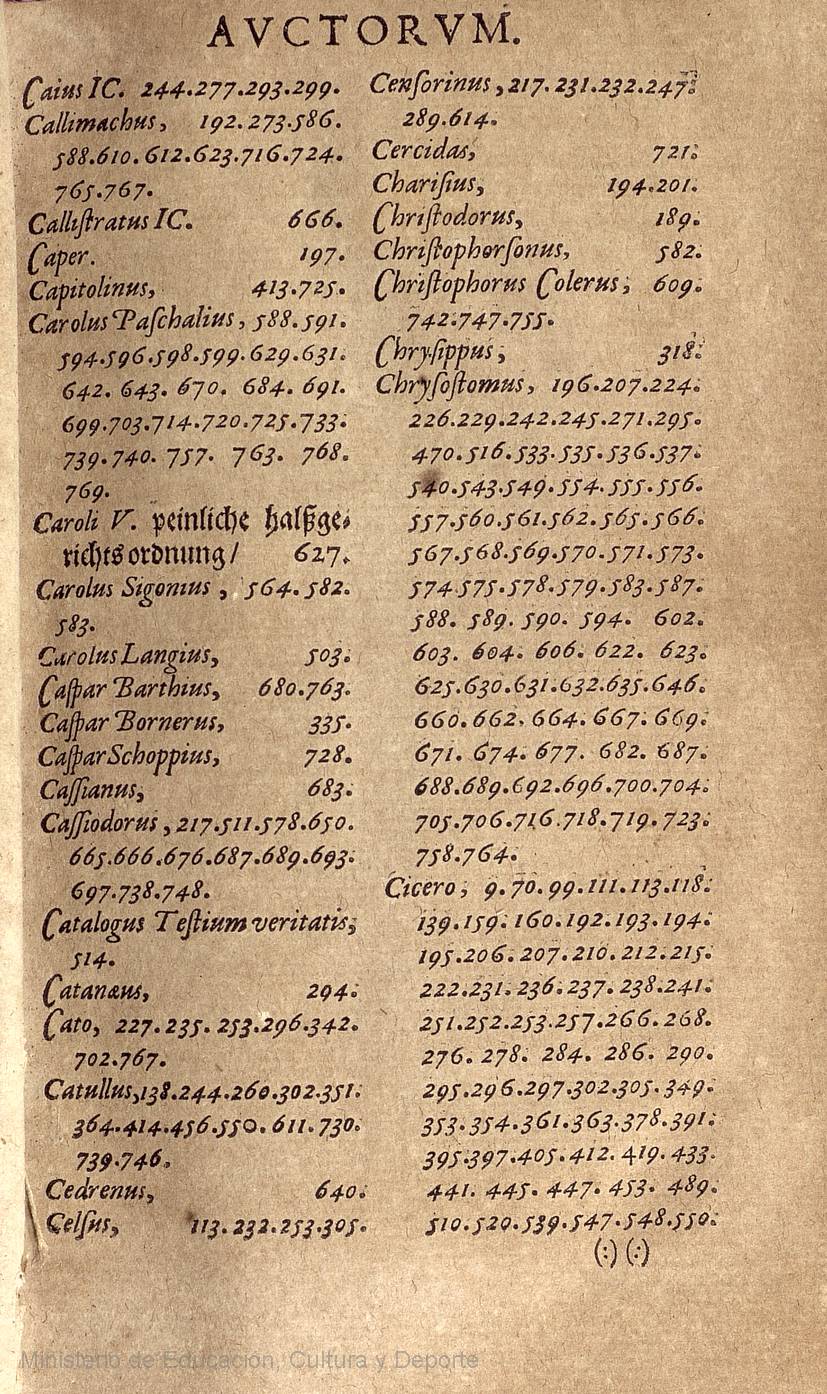 AVCTORVM.
Caius IC. 244.277.293.299.
Callimachus, 192.273.586.
588.610.612.623.716.724.
765.767.
Calliſtratus IC. 666.
Caper. 197.
Capitolinus, 413.725.
Carolus Paſchalius, 588.591.
594.596.598.599.629.631.
642. 643. 670. 684. 691.
699.703.714.720.725.733.
739.740. 757. 763. 768.
769.
Caroli V. peinliche halßge-
richts ordnung / 627.
Carolus Sigonius , 564.582.
583.
Carolus Langius, 503.
Caſpar Barthius, 680.763.
Caſpar Bornerus, 335.
Caſpar Schoppius, 728.
Caſſianus, 683.
Caſſiodorus , 217.511.578.650.
665.666.676.687.689.693.
697.738.748.
Catalogus Teſtium veritatis,
514.
Catanæus, 294.
Cato, 227.235.253.296.342.
702.767.
Catullus,138.244.260.302.351.
364.414.456.550.611.730.
739.746.
Cedrenus, 640.
Celſus, 113.232.253.305.
Cenſorinus , 217.231.232.247.
289.614.
Cercidas, 721.
Chariſius, 194.201.
Chriſtodorus, 189.
Chriſtophorſonus, 582.
Chriſtophorus Colerus, 609.
742.747.755.
Chryſippus, 318.
Chryſoſtomus, 196.207.224.
226.229.242.245.271.295.
470.516.533.535.536.537.
540.543.549.554.555.556.
557.560.561.562.565.566.
567.568.569.570.571.573.
574.575.578.579.583.587.
588. 589. 590. 594. 602.
603. 604. 606. 622. 623.
625.630.631.632.635.646.
660.662.664.667.669.
671. 674. 677. 682. 687.
688.689.692.696.700.704.
705.706.716.718.719.723.
758.764.
Cicero, 9.70.99.111.113.118.
139.159.160.192.193.194.
195.206.207.210.212.215.
222.231.236.237.238.241.
251.252.253.257.266.268.
276. 278. 284. 286. 290.
295.296.297.302.305.349.
353.354.361.363.378.391.
395.397.405.412.419.433.
441. 445. 447. 453. 489.
510.520.539.547.548.550.
(:) (:)
Ministerio de Educación, Cultura y Deporte